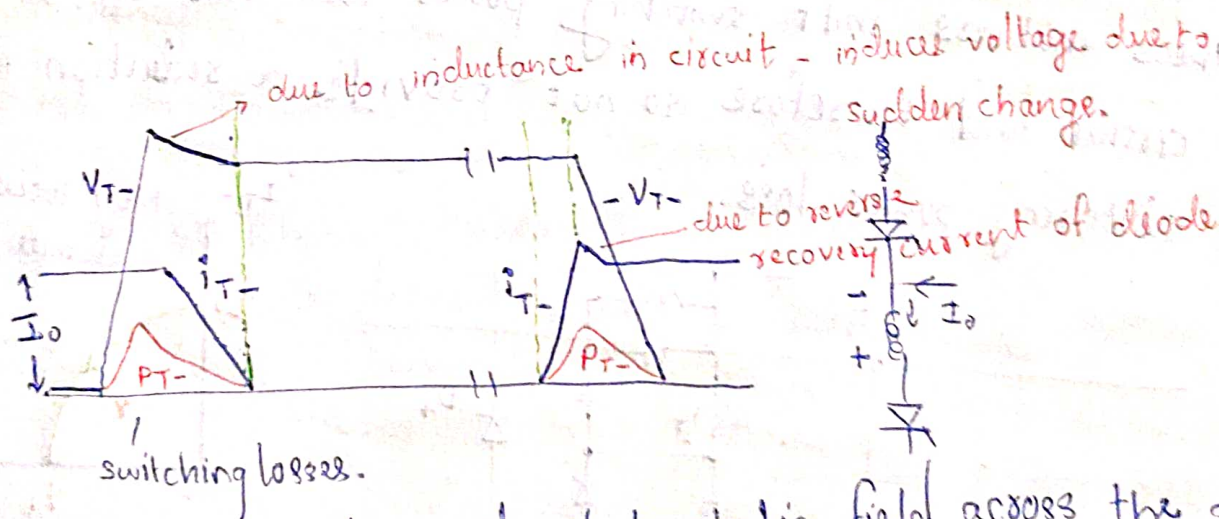 due to inductance in circuit - induces voltage due to
sudden change.
VT-
-VT-
due to reverse
recovery current of diode
iT-
iT-
I0
-
I0
+
PT-
PT-
switching losses.
field across the